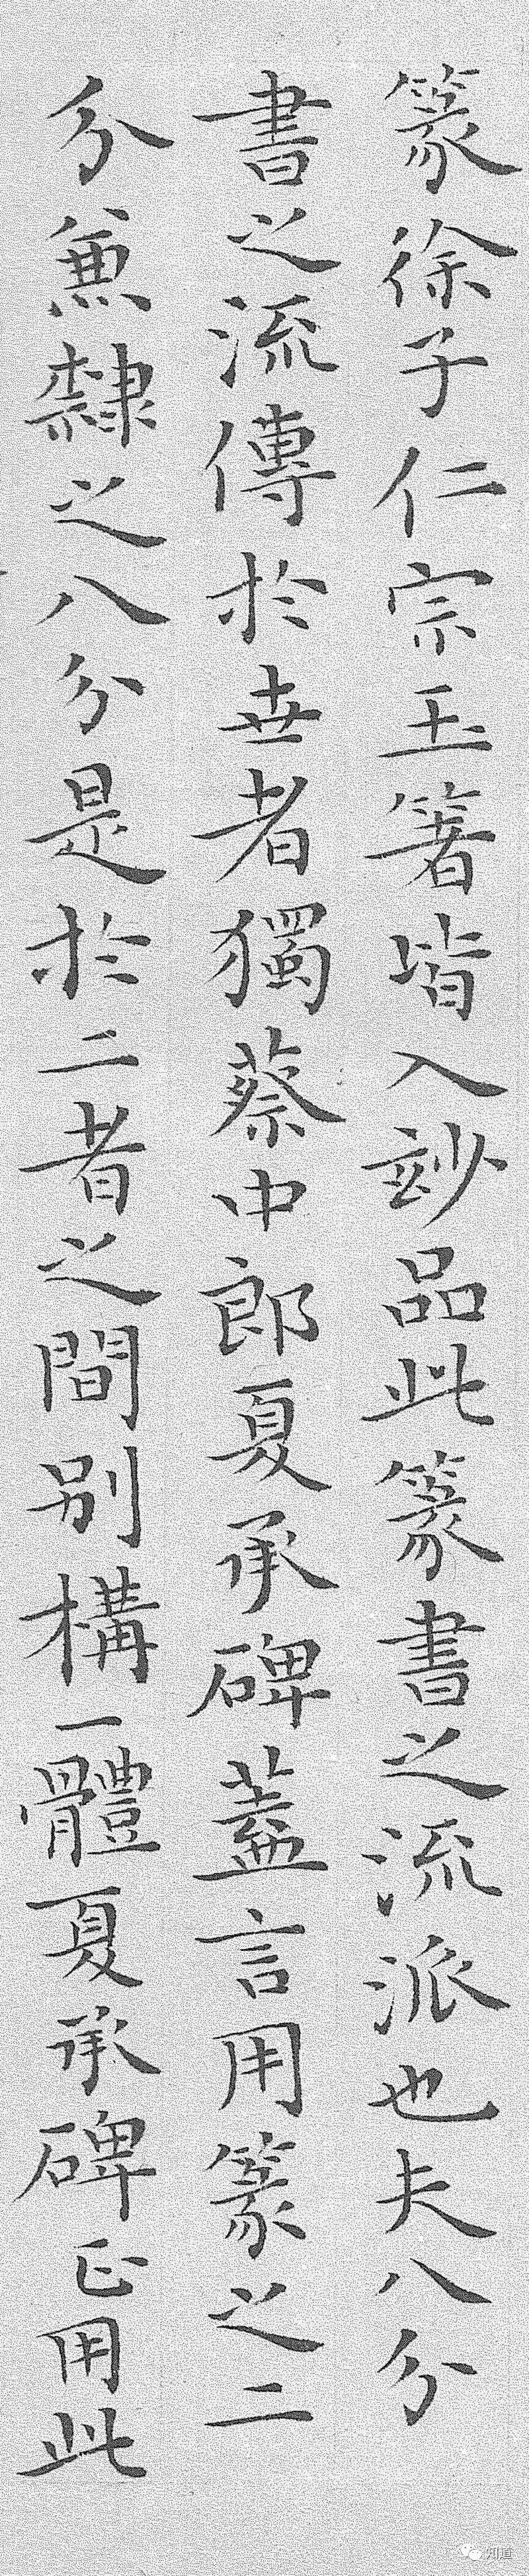 篆徐子仁宗玉箸皆入玅品此篆書之流派也夫八分
書之流傳於世者獨蔡中郎夏承碑蓋言用篆之二
分兼隸之八分是於二者之間别構一體夏承碑正用此
知道